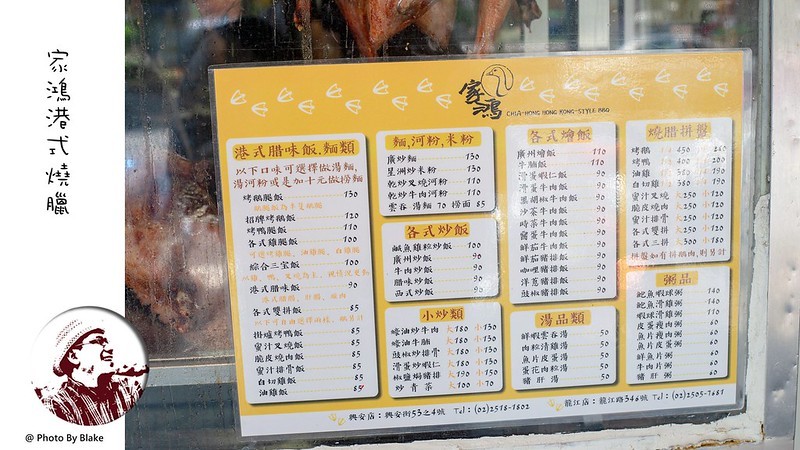 家鴻港式燒臘
@ Photo By Blake
家鴻
CHIA-HONG HONG KONG-STYLE BBQ
港式腊味飯.麵類
以下口味可選擇做湯麵,
湯河粉或是加十元做撈麵
烤鵝腿飯 130
招牌烤鵝飯 120
烤鴨腿飯 110
各式雞腿飯 100
綜合三宝飯 100
港式腊味飯 90
各式雙拼飯 85
掛爐烤鴨飯 85
蜜汁叉燒飯 85
脆皮燒肉飯 85
蜜汁排骨飯 85
白切雞飯 85
油雞飯 85
麵,河粉,米粉
廣炒麵 130
星洲炒米粉 130
乾炒叉燒河粉 110
乾炒牛肉河粉 110
雲吞 湯麵 70 撈面 85
各式炒飯
鹹魚雞粒炒飯 100
廣州炒飯 90
牛肉炒飯 90
腊味炒飯 90
西式炒飯 90
小炒類
蠔油炒牛肉 大180 小130
蠔油牛腩 大180 小130
豉椒炒排骨 大180 小130
滑蛋炒蝦仁 大180 小130
椒鹽焗豬排 大190 小150
炒青菜 大100 小70
各式燴飯
廣州燴飯 100
牛腩飯 100
滑蛋蝦仁飯 90
滑蛋牛肉飯 90
黑胡椒牛肉飯 90
沙茶牛肉飯 90
時菜牛肉飯 90
窩蛋牛肉飯 90
鮮茄牛肉飯 90
鮮茄豬排飯 90
咖哩豬排飯 90
洋蔥豬排飯 90
豉椒豬排飯 90
湯品類
鮮蝦雲吞湯 50
肉粒清雞湯 50
魚片皮蛋湯 50
蛋花肉粒湯 50
豬肝湯 50
燒腊拼盤
烤鵝 1/4 450
烤鴨
油雞
白切雞
蜜汁叉燒 大250 小120
脆皮燒肉 大250 小120
蜜汁排骨 大250 小120
各式雙拼 大250 小120
各式三拼 大300 小180
粥品
鮑魚蝦球粥 140
鮑魚滑雞粥 140
蝦球滑雞粥 110
皮蛋瘦肉粥 60
魚片瘦肉粥 60
魚片皮蛋粥 60
鮮魚片粥 60
牛肉片粥 60
豬肝粥 60
興安店:興安街53之4號 Tel:(02)2518-1802
龍江店:龍江路346號 Tel:(02)2505-7681